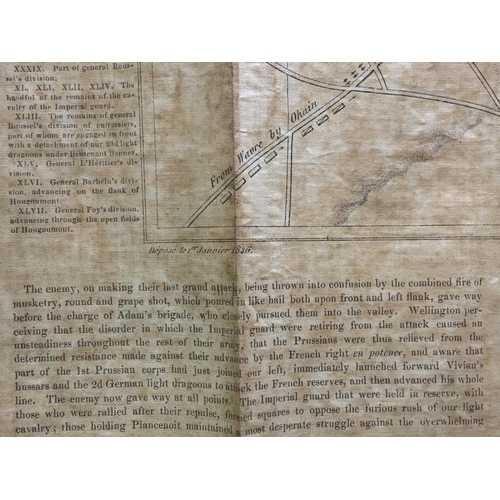 XXXIX. Part of general Rous-
sel's division.
XL, XLI, XLII, XLIV. The
handful of the remains of the ca-
valry of the Imperial guard.
XLIII. The remains of general
Roussel's division of cuirassiers,
part of whom are engaged in front
with a detachment of our 23d light
dragoons under lieutenant Banner.
XLV. General L'Heritier's di-
vision.
XLVI. General Bachelu's divi-
sion, advancing on the flank of
Hougoumont.
XLVII. General Foy's division,
advancing through the open fields
of Hougoumont.
From Wavre by Ohain
Déposé le 1er Janvier 1826.
The enemy, on making their last grand attack, being thrown into confusion by the combined fire of
musketry, round and grape shot, which poured in like hail both upon front and left flank, gave way
before the charge of Adam's brigade, who closely pursued them into the valley. Wellington per-
ceiving that the disorder in which the Imperial guard were retiring from the attack caused an
unsteadiness throughout the rest of their army, that the Prussians were thus relieved from the
determined resistance made against their advance by the French right en potence, and aware that
part of the 1st Prussian corps had just joined our left, immediately launched forward Vivian's
hussars and the 2d German light dragoons to attack the French reserves, and then advanced his whole
line. The enemy now gave way at all points. The Imperial guard that were held in reserve, with
those who were rallied after their repulse, formed squares to oppose the furious rush of our light
cavalry; those holding Plancenoit maintained a most desperate struggle against the overwhelming